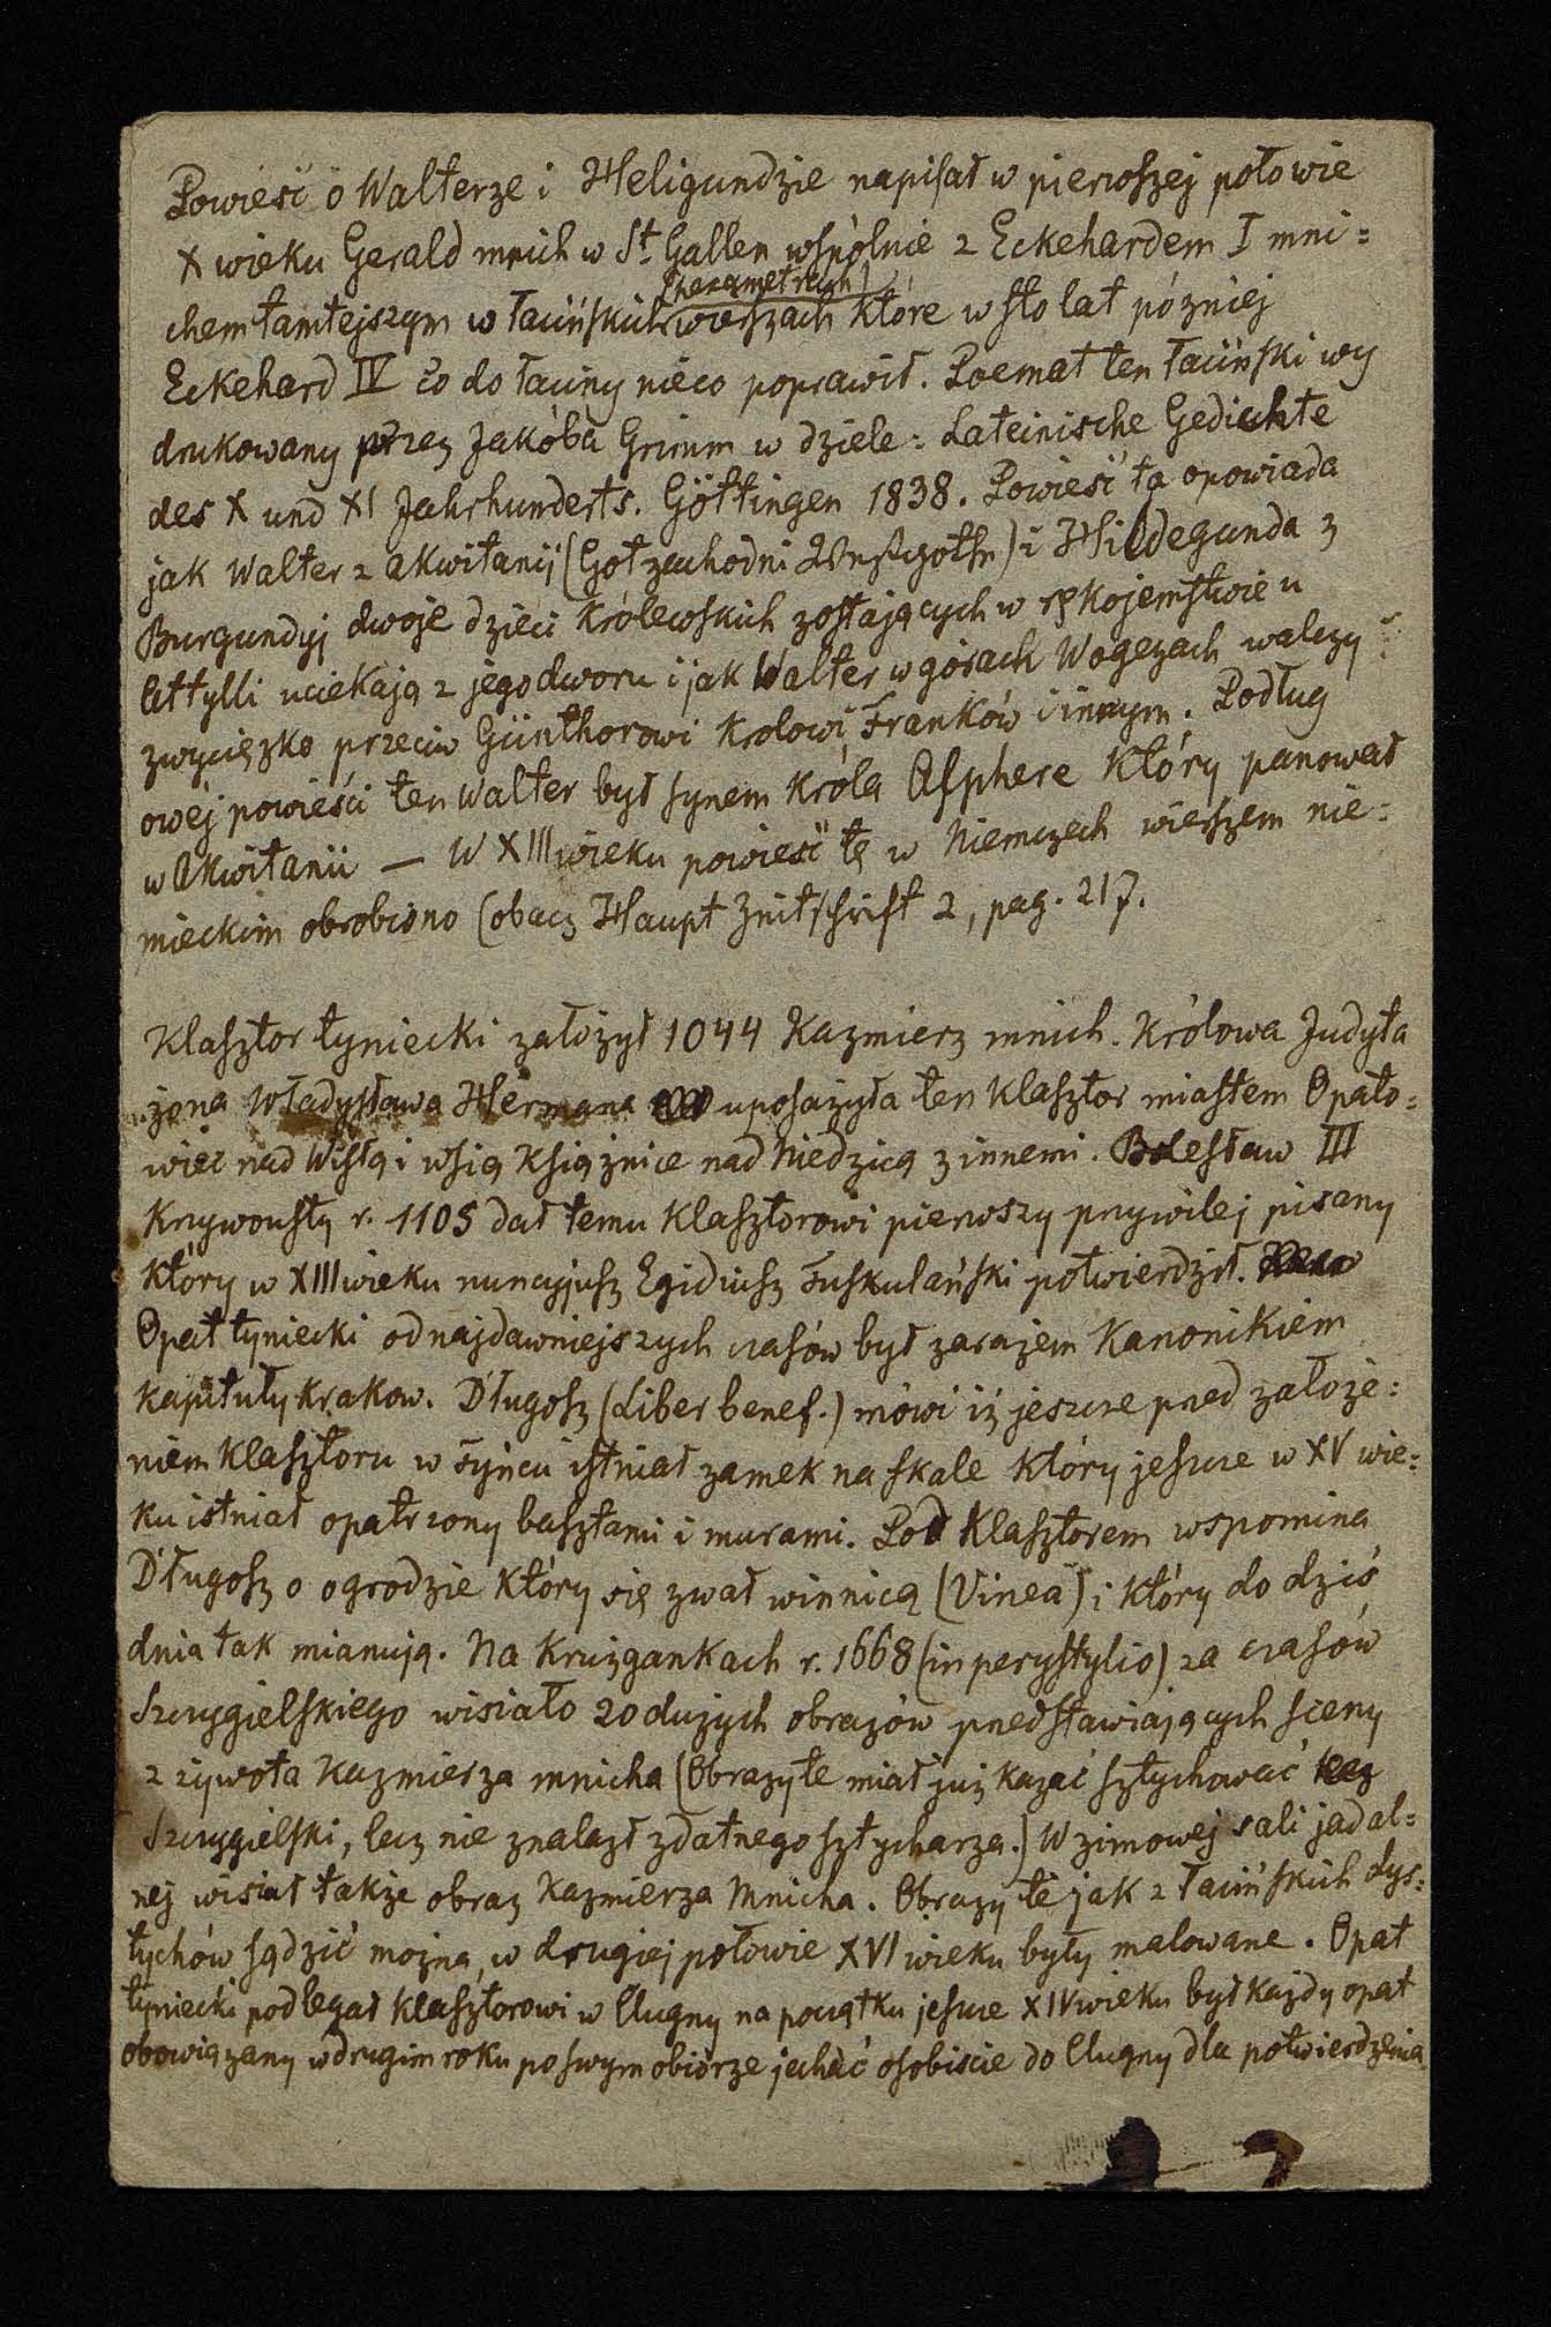 Powieść o Walterze i Heligundzie napisał w pierwszej połowie
X wieku Gerald mnich w St Gallen wspólnie z Eckehardem I mni=
(hexametrach)
chem tamtejszym w łacińskich wierszach które w sto lat pózniej
Eckehard IV co do łaciny nieco poprawił. Poemat ten łaciński wy
drukowany przez Jakóba Grimm w dziele: Lateinische Gedichte
des X und XI Jahrhunderts. Göttingen 1838. Powieść ta opowiada
jak Walter z Akwitanij (Got zachodni Westgothe) i Hildegunda z
Burgundyj dwoje dzieci królewskich zostających w rękojemstwie u
Attylli uciekają z jego dworu i jak Walter w górach Wogezach walczy
zwycięzko przeciw Günthorowi Krolowi Franków i innym. Podług
owéj powieści ten Walter był synem króla Alphere który panował
w Akwitanii — W XIII wieku powieść tę w Niemczech wierszem nie=
mieckim obrobiono (obacz Haupt Zeitschrift 2, pag. 217.
Klasztor tyniecki założył 1044 Kazmierz mnich. Królowa Judyta
żona Władysława Hermana uposażyła ten klasztor miastem Opato=
wiec nad Wisłą i wsią Książnice nad Niedzicą z innemi. Bolesław III
Krzywousty r. 1105 dał temu klasztorowi pierwszy przywilej pisany
który w XIII wieku nuncyjusz Egidiusz Tuskulański potwierdził.
Opat tyniecki od najdawniejszych czasów był zarazem Kanonikiem
kapituły krakow. Długosz (Liber benef.) mówi iż jeszcze przed założe=
niem klasztoru w Tyńcu istniał zamek na skale który jeszcze w XV wie=
ku istniał opatrzony basztami i murami. Pod klasztorem wspomina
Długosz o ogrodzie który się zwał winnicą (Vinea) i który do dziś
dnia tak mianują. Na krużgankach r. 1668 (in perystylio) za czasów
Szczygielskiego wisiało 20 dużych obrazów przedstawiających sceny
z żywota Kazmierza mnicha (Obrazy te miał już kazać sztychować
Szczygielski, lecz nie znalazł zdatnego sztycharza.) W zimowej sali jadal=
nej wisiał także obraz Kazmierza Mnicha. Obrazy te jak z łacińskich dys=
tychów sądzić można, w drugiej połowie XVI wieku były malowane. Opat
tyniecki podlegał klasztorowi w Clugny na początku jeszcze XIV wieku był każdy opat
obowiązany w drugim roku po swym obiorze jechać osobiscie do Clugny dla potwierdzenia